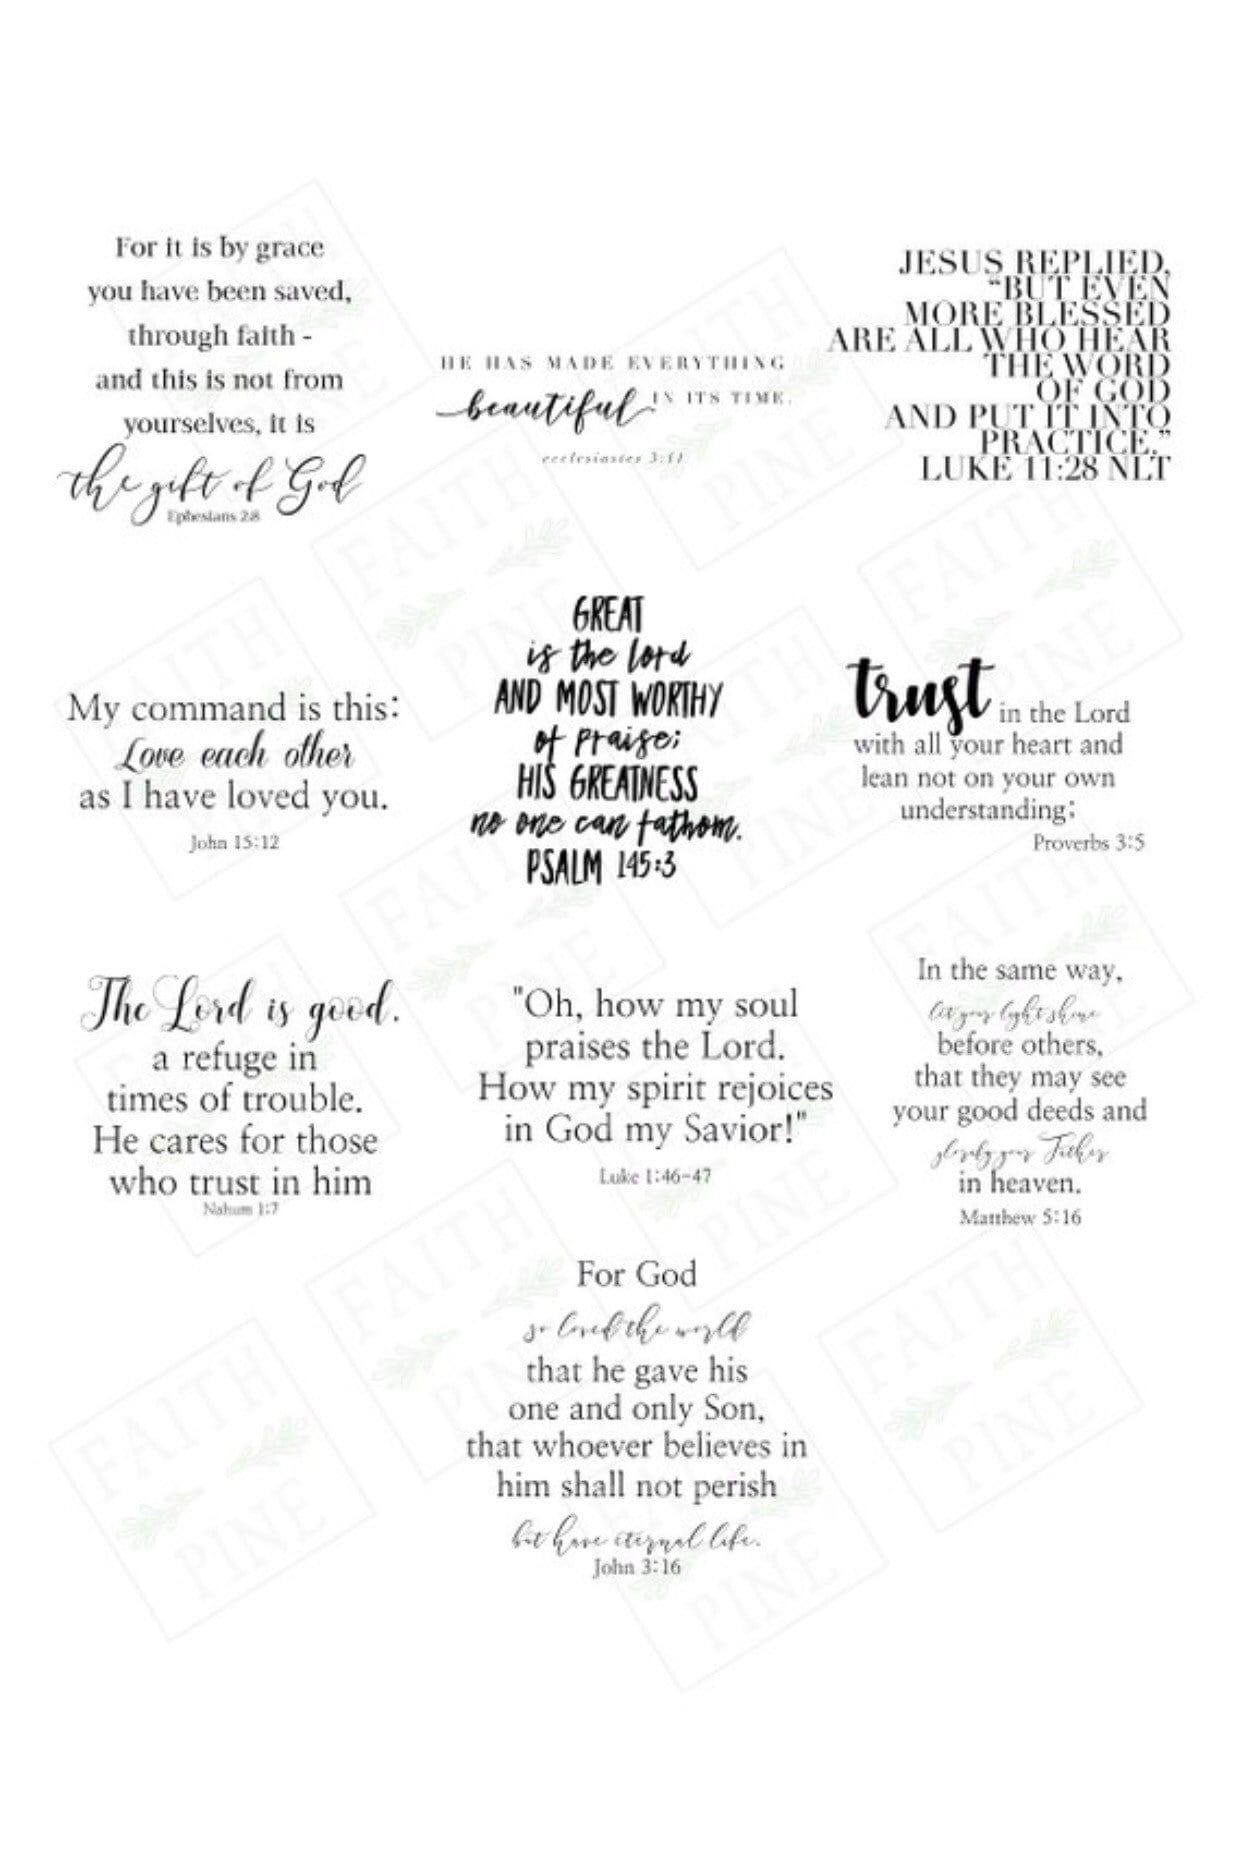 For it is by grace
you have been saved,
through faith -
and this is not from
yourselves, it is
the gift of God
Ephesians 2:8
HE HAS MADE EVERYTHING
beautiful IN ITS TIME.
ecclesiastes 3:11
JESUS REPLIED,
“BUT EVEN
MORE BLESSED
ARE ALL WHO HEAR
THE WORD
OF GOD
AND PUT IT INTO
PRACTICE.”
LUKE 11:28 NLT
My command is this:
Love each other
as I have loved you.
John 15:12
GREAT
is the lord
AND MOST WORTHY
of praise;
HIS GREATNESS
no one can fathom.
PSALM 145:3
trust in the Lord
with all your heart and
lean not on your own
understanding;
Proverbs 3:5
The Lord is good.
a refuge in
times of trouble.
He cares for those
who trust in him
Nahum 1:7
"Oh, how my soul
praises the Lord.
How my spirit rejoices
in God my Savior!"
Luke 1:46-47
In the same way,
let your light shine
before others,
that they may see
your good deeds and
glorify your Father
in heaven.
Matthew 5:16
For God
so loved the world
that he gave his
one and only Son,
that whoever believes in
him shall not perish
but have eternal life.
John 3:16
FAITH
PINE